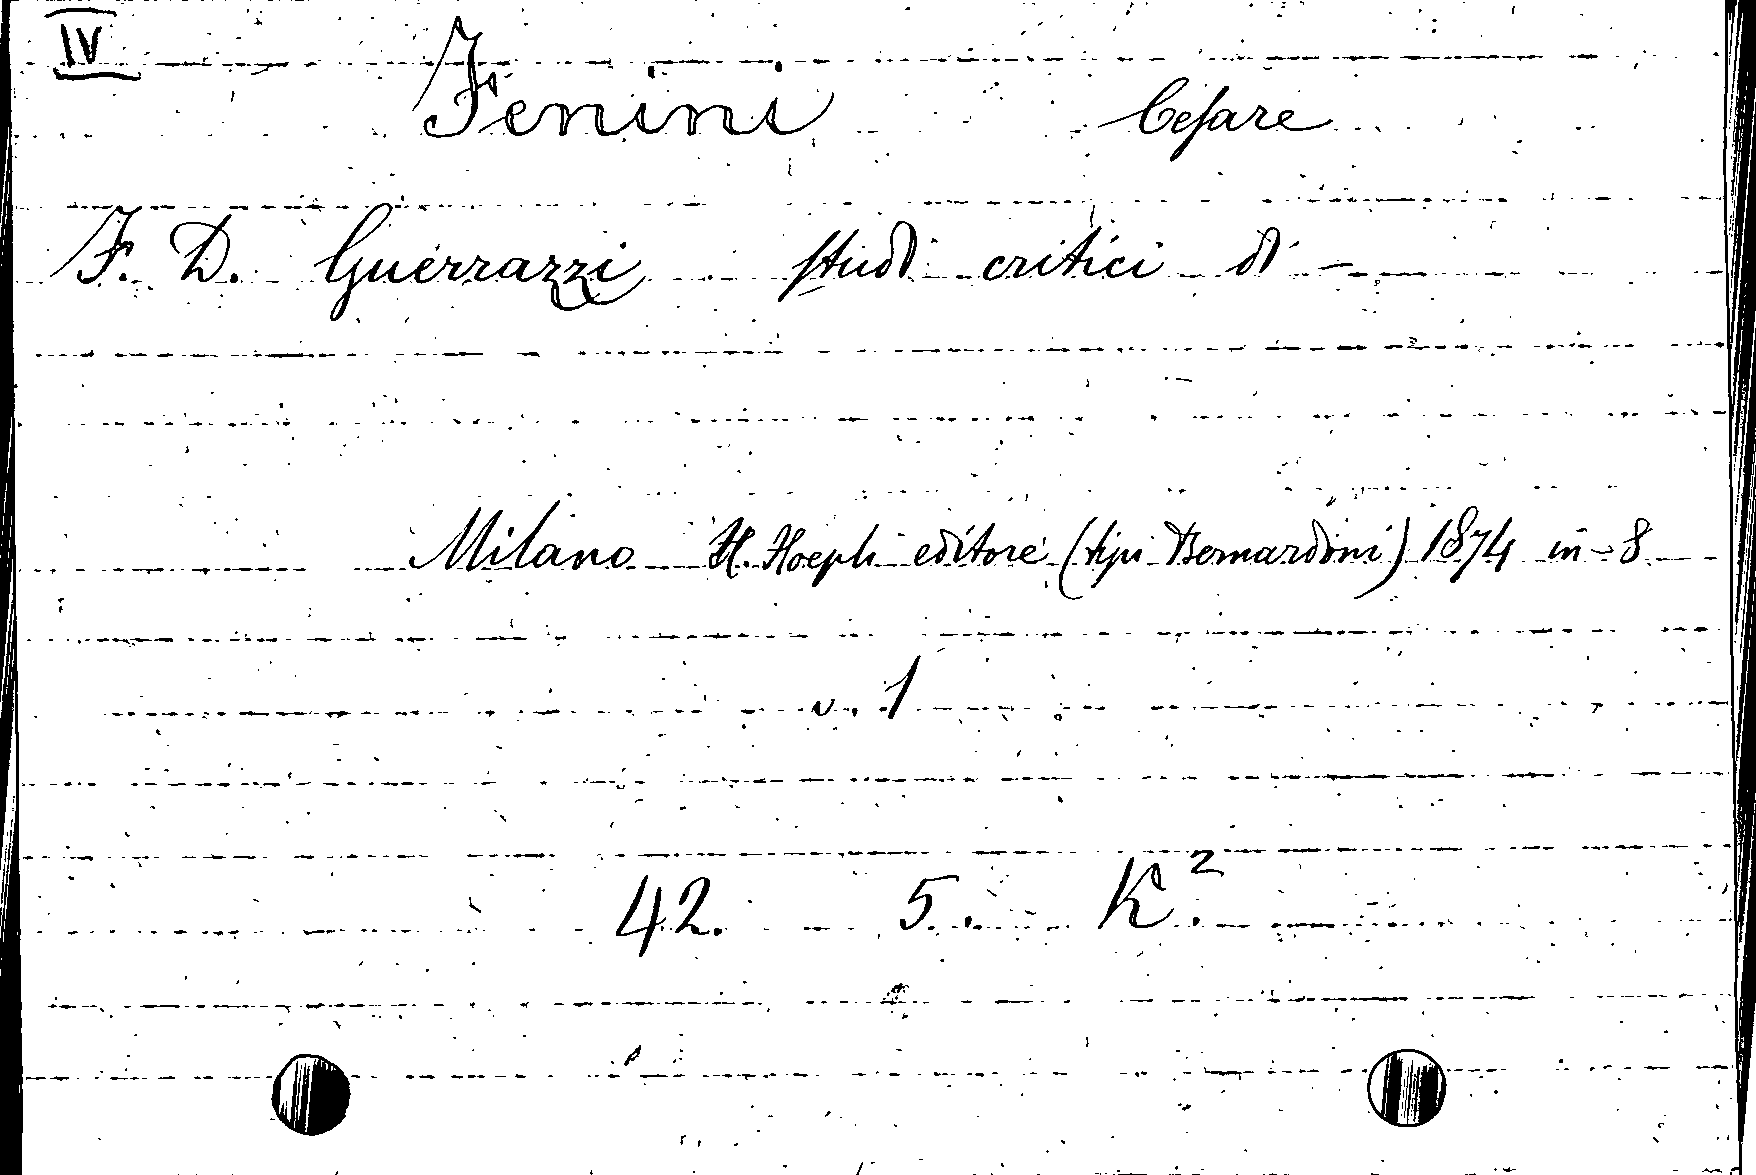 IV
Fenini Cesare
F. D. Guerrazzi studi critici di -
Milano H. Hoepli editore (tipi Bernardoni) 1874 in-8
v. 1
42. 5. K.²